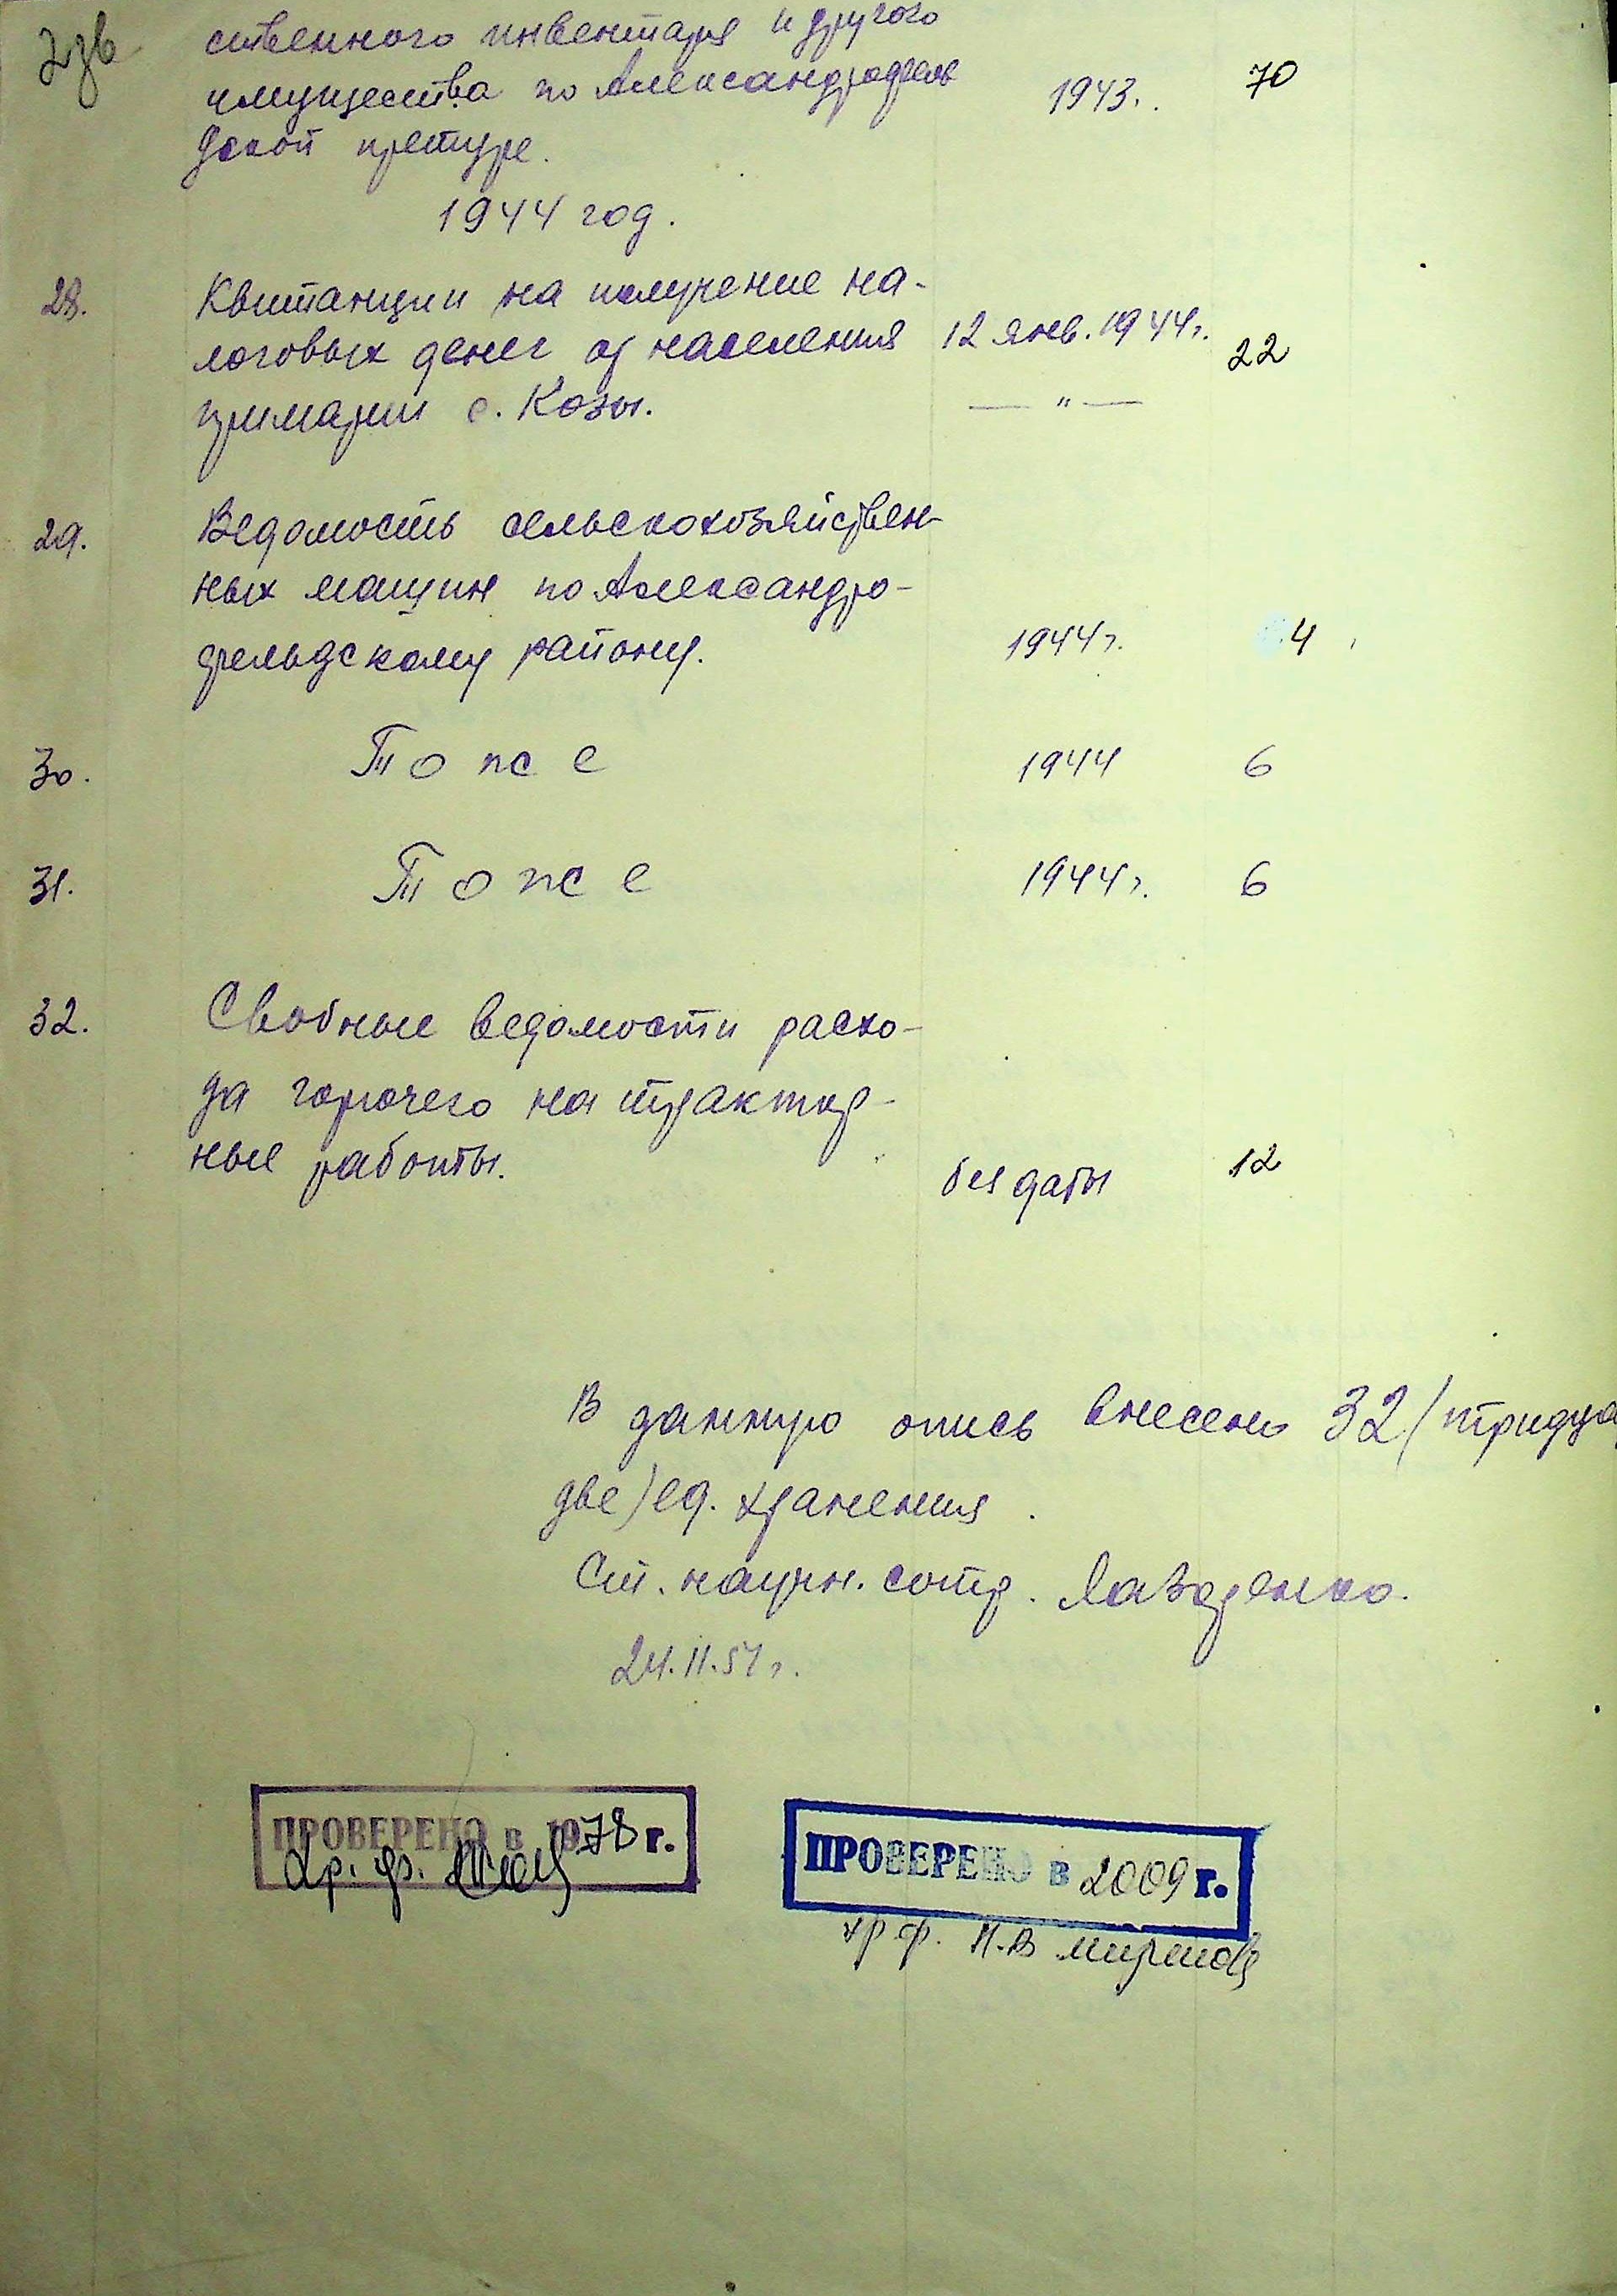 ственного инвентаря и другого
имущества по Александрофель 1943. 70
дской претуре.
1944 год.
28. Квитанции на получение на-
логовых денег от населения 12 янв. 1944г. 22
примарии с. Козы. — " —
29. Ведомость сельскохозяйствен-
ных машин по Александро-
фельдскому району. 1944г. 4
30. То же 1944 6
31. То же 1944г. 6
32. Сводные ведомости расхо-
да горючего на трактор-
ные работы. без даты 12
В данную опись внесено 32 (тридца
две) ед. хранения.
Ст. научн. сотр.
24.11.51г.
ПРОВЕРЕНО в 1978 г.
Хр. ф.
ПРОВЕРЕНО в 2009 г.
хр ф.